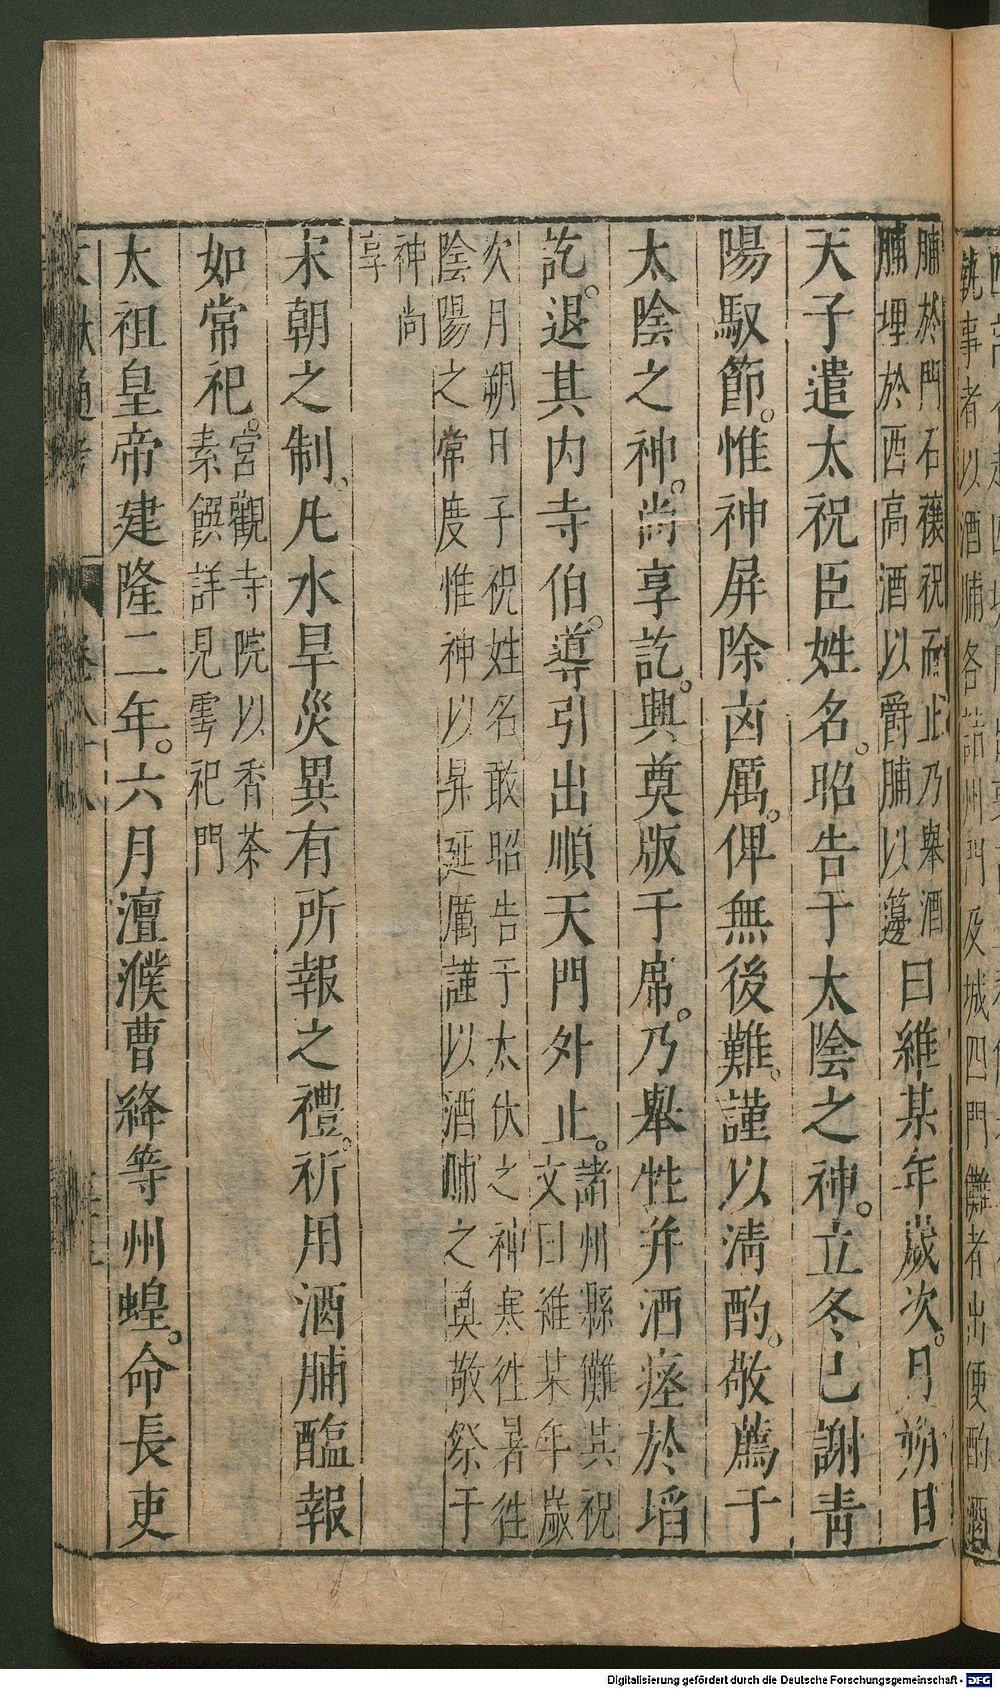 執事者以酒脯各詣州門及城四門儺者出便酌酒
脯於門石禳祝而止乃舉酒
脯埋於西高酒以爵脯以籩
曰維某年歲次。月朔日
天子遣太祝臣姓名。昭告于太陰之神。立冬已謝青
陽馭節。惟神屏除凶厲。俾無後難。謹以淸酌。敬薦于
太陰之神。尚享訖。興奠版于席。乃舉牲并酒瘞於埳
訖。退其內寺伯。導引出順天門外止。
諸州縣儺其祝
文曰維某年歲
次月朔日子祝姓名敢昭告于太伏之神寒往暑往
陰陽之常度惟神以昇延厲謹以酒脯之奠敬祭于
神尚
享
宋朝之制。凡水旱災異有所報之禮。祈用酒脯醢報
如常祀。
宮觀寺院以香茶
素饌詳見雩祀門
太祖皇帝建隆二年。六月澶濮曹絳等州蝗。命長吏
文獻通考
卷八十八
Digitalisierung gefördert durch die Deutsche Forschungsgemeinschaft - DFG